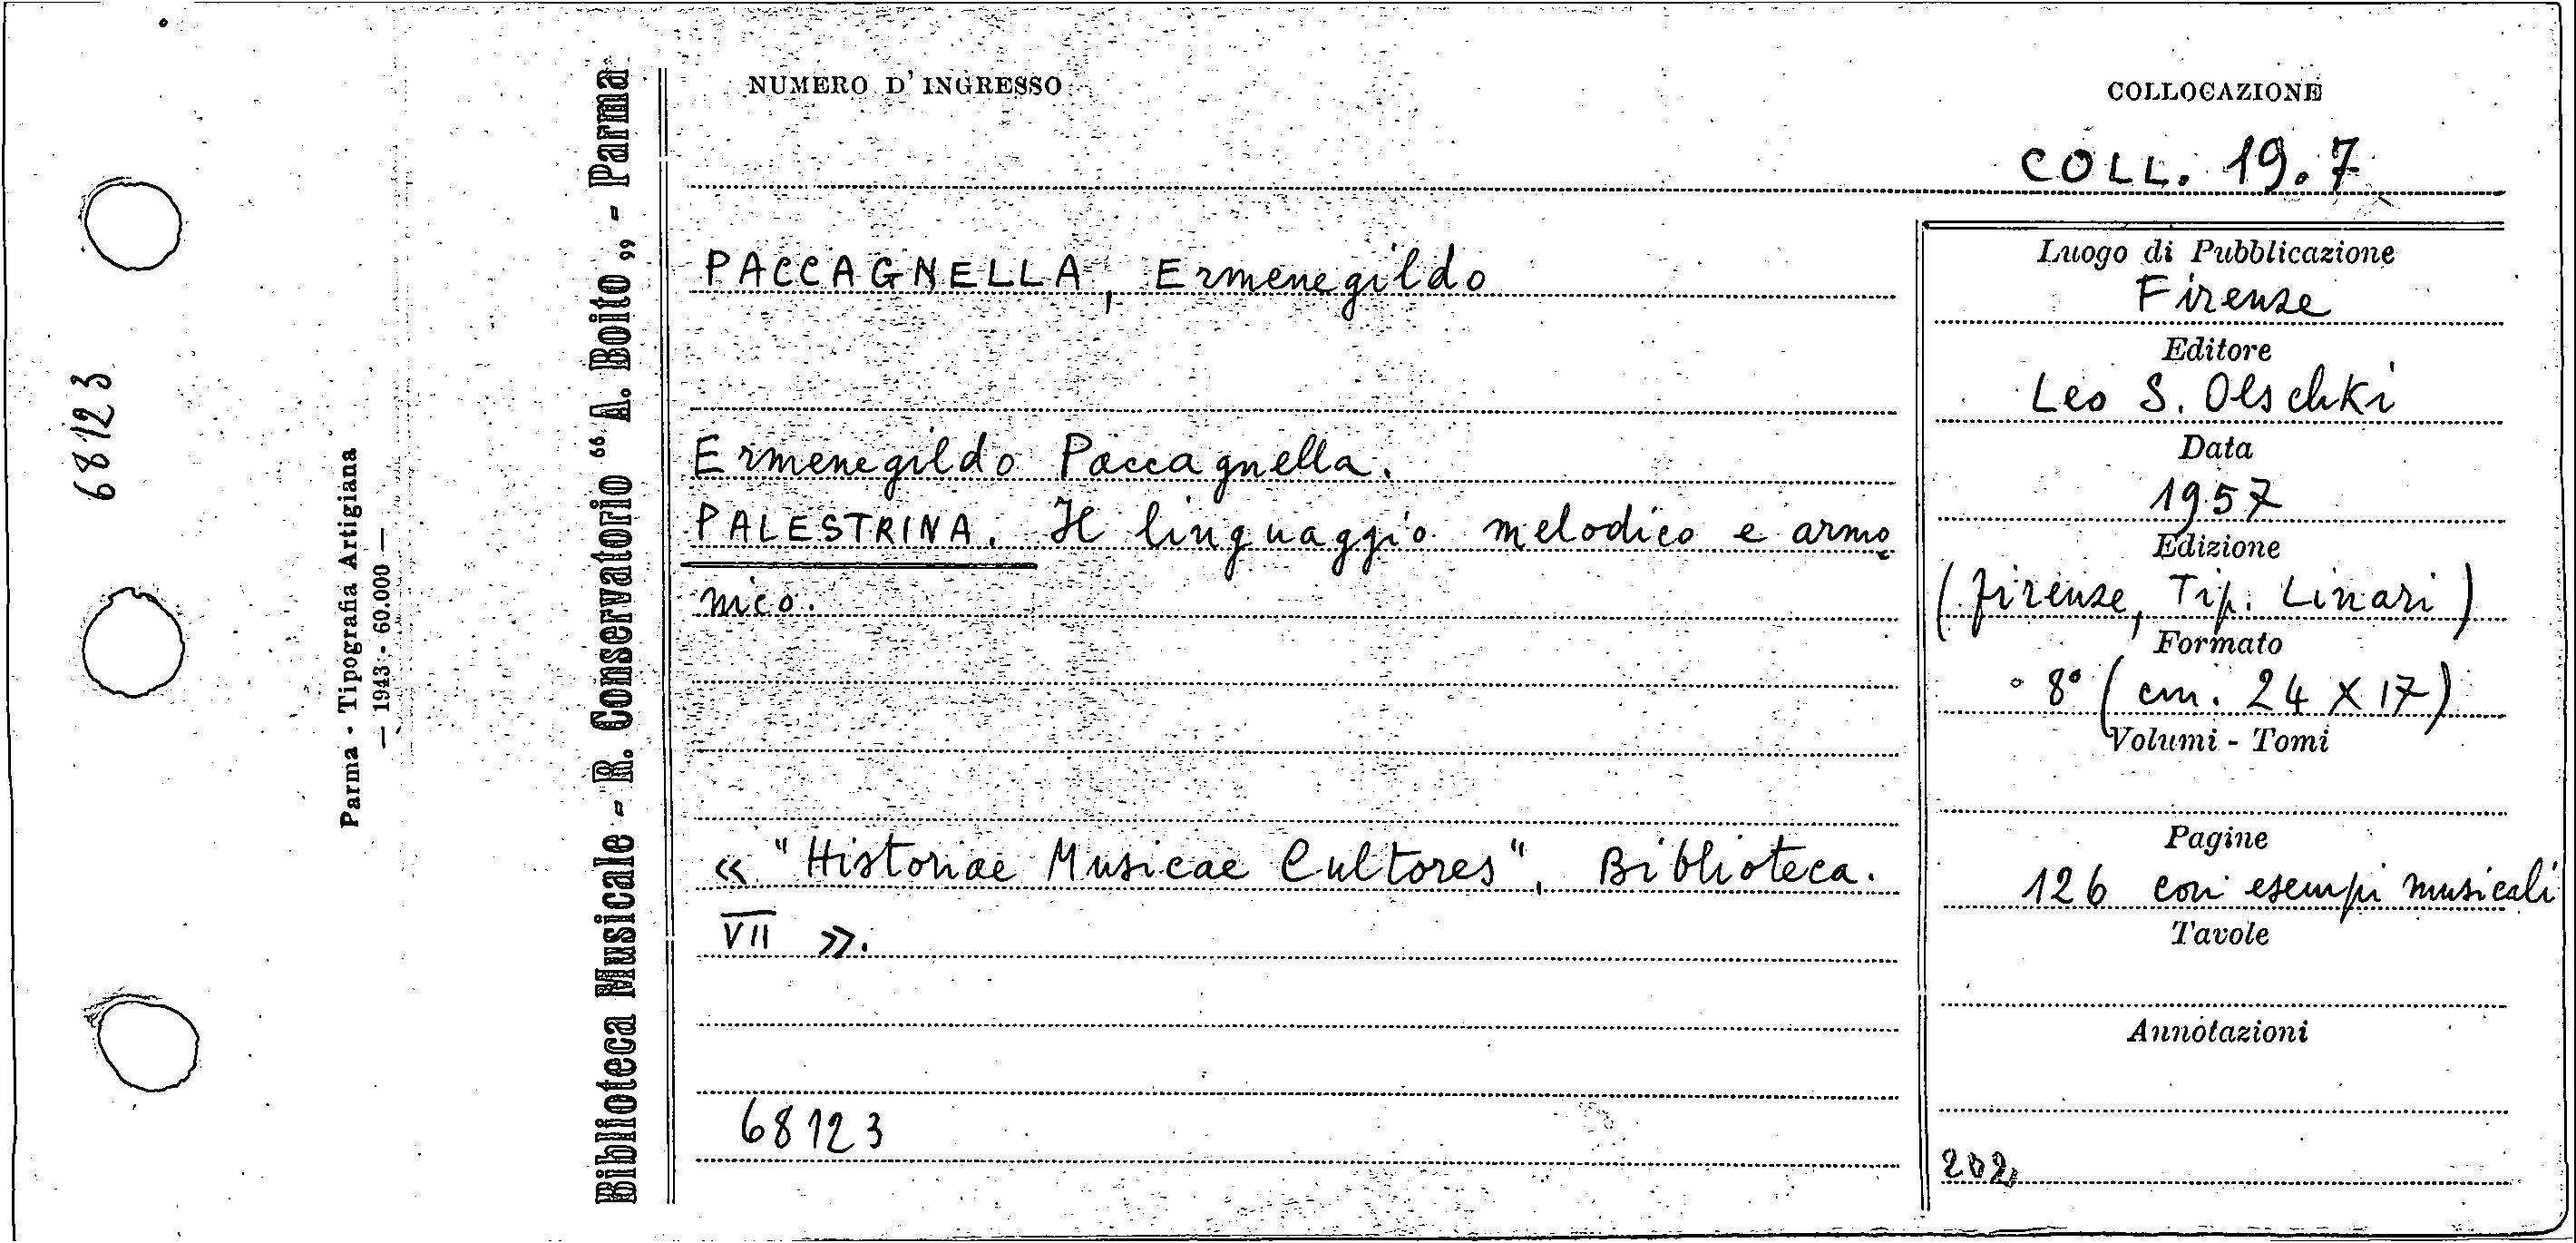 68123
Parma - Tipografia Artigiana
— 1943 - 60.000 —
Biblioteca Musicale - R. Conservatorio “ A. Boito „ - Parma
NUMERO D' INGRESSO
COLLOCAZIONE
COLL. 19.7
PACCAGNELLA, Ermenegildo
Ermenegildo Paccagnella.
PALESTRINA. Il linguaggio melodico e armo
nico.
« "Historiae Musicae Cultores", Biblioteca.
VII ».
68123
Luogo di Pubblicazione
Firenze
Editore
Leo S. Olschki
Data
1957
Edizione
(Firenze, Tip. Linari)
Formato
8° (cm. 24 X 17)
Volumi - Tomi
Pagine
126 con esempi musicali
Tavole
Annotazioni
202